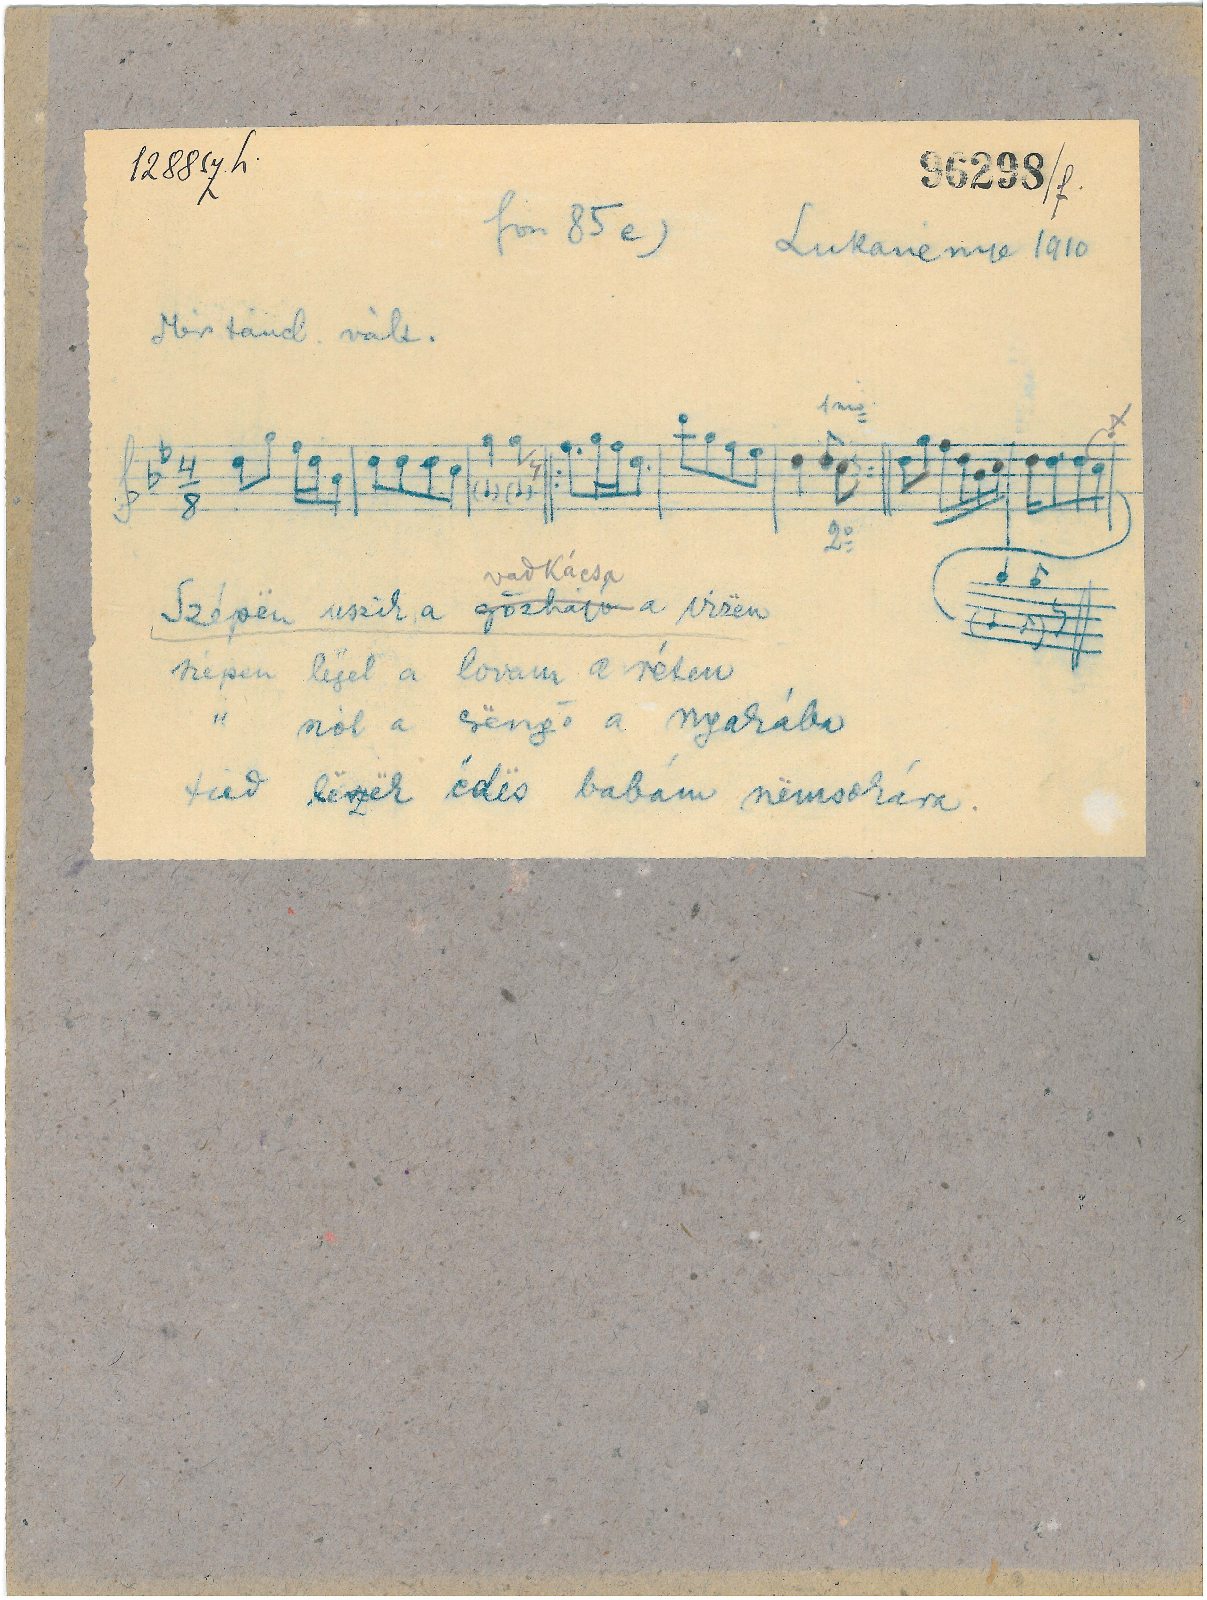 1288 sz. h.
96298/f.
fon 85 e) Lukanénye 1910
vált.
1mo
4
8
2o
vadkácsa
Szépën uszik a gőzhajó a vizën
szépen lëgel a lovam a réten
" szól a csëngő a nyakába
tied lëszëk édës babám nëmsokára.